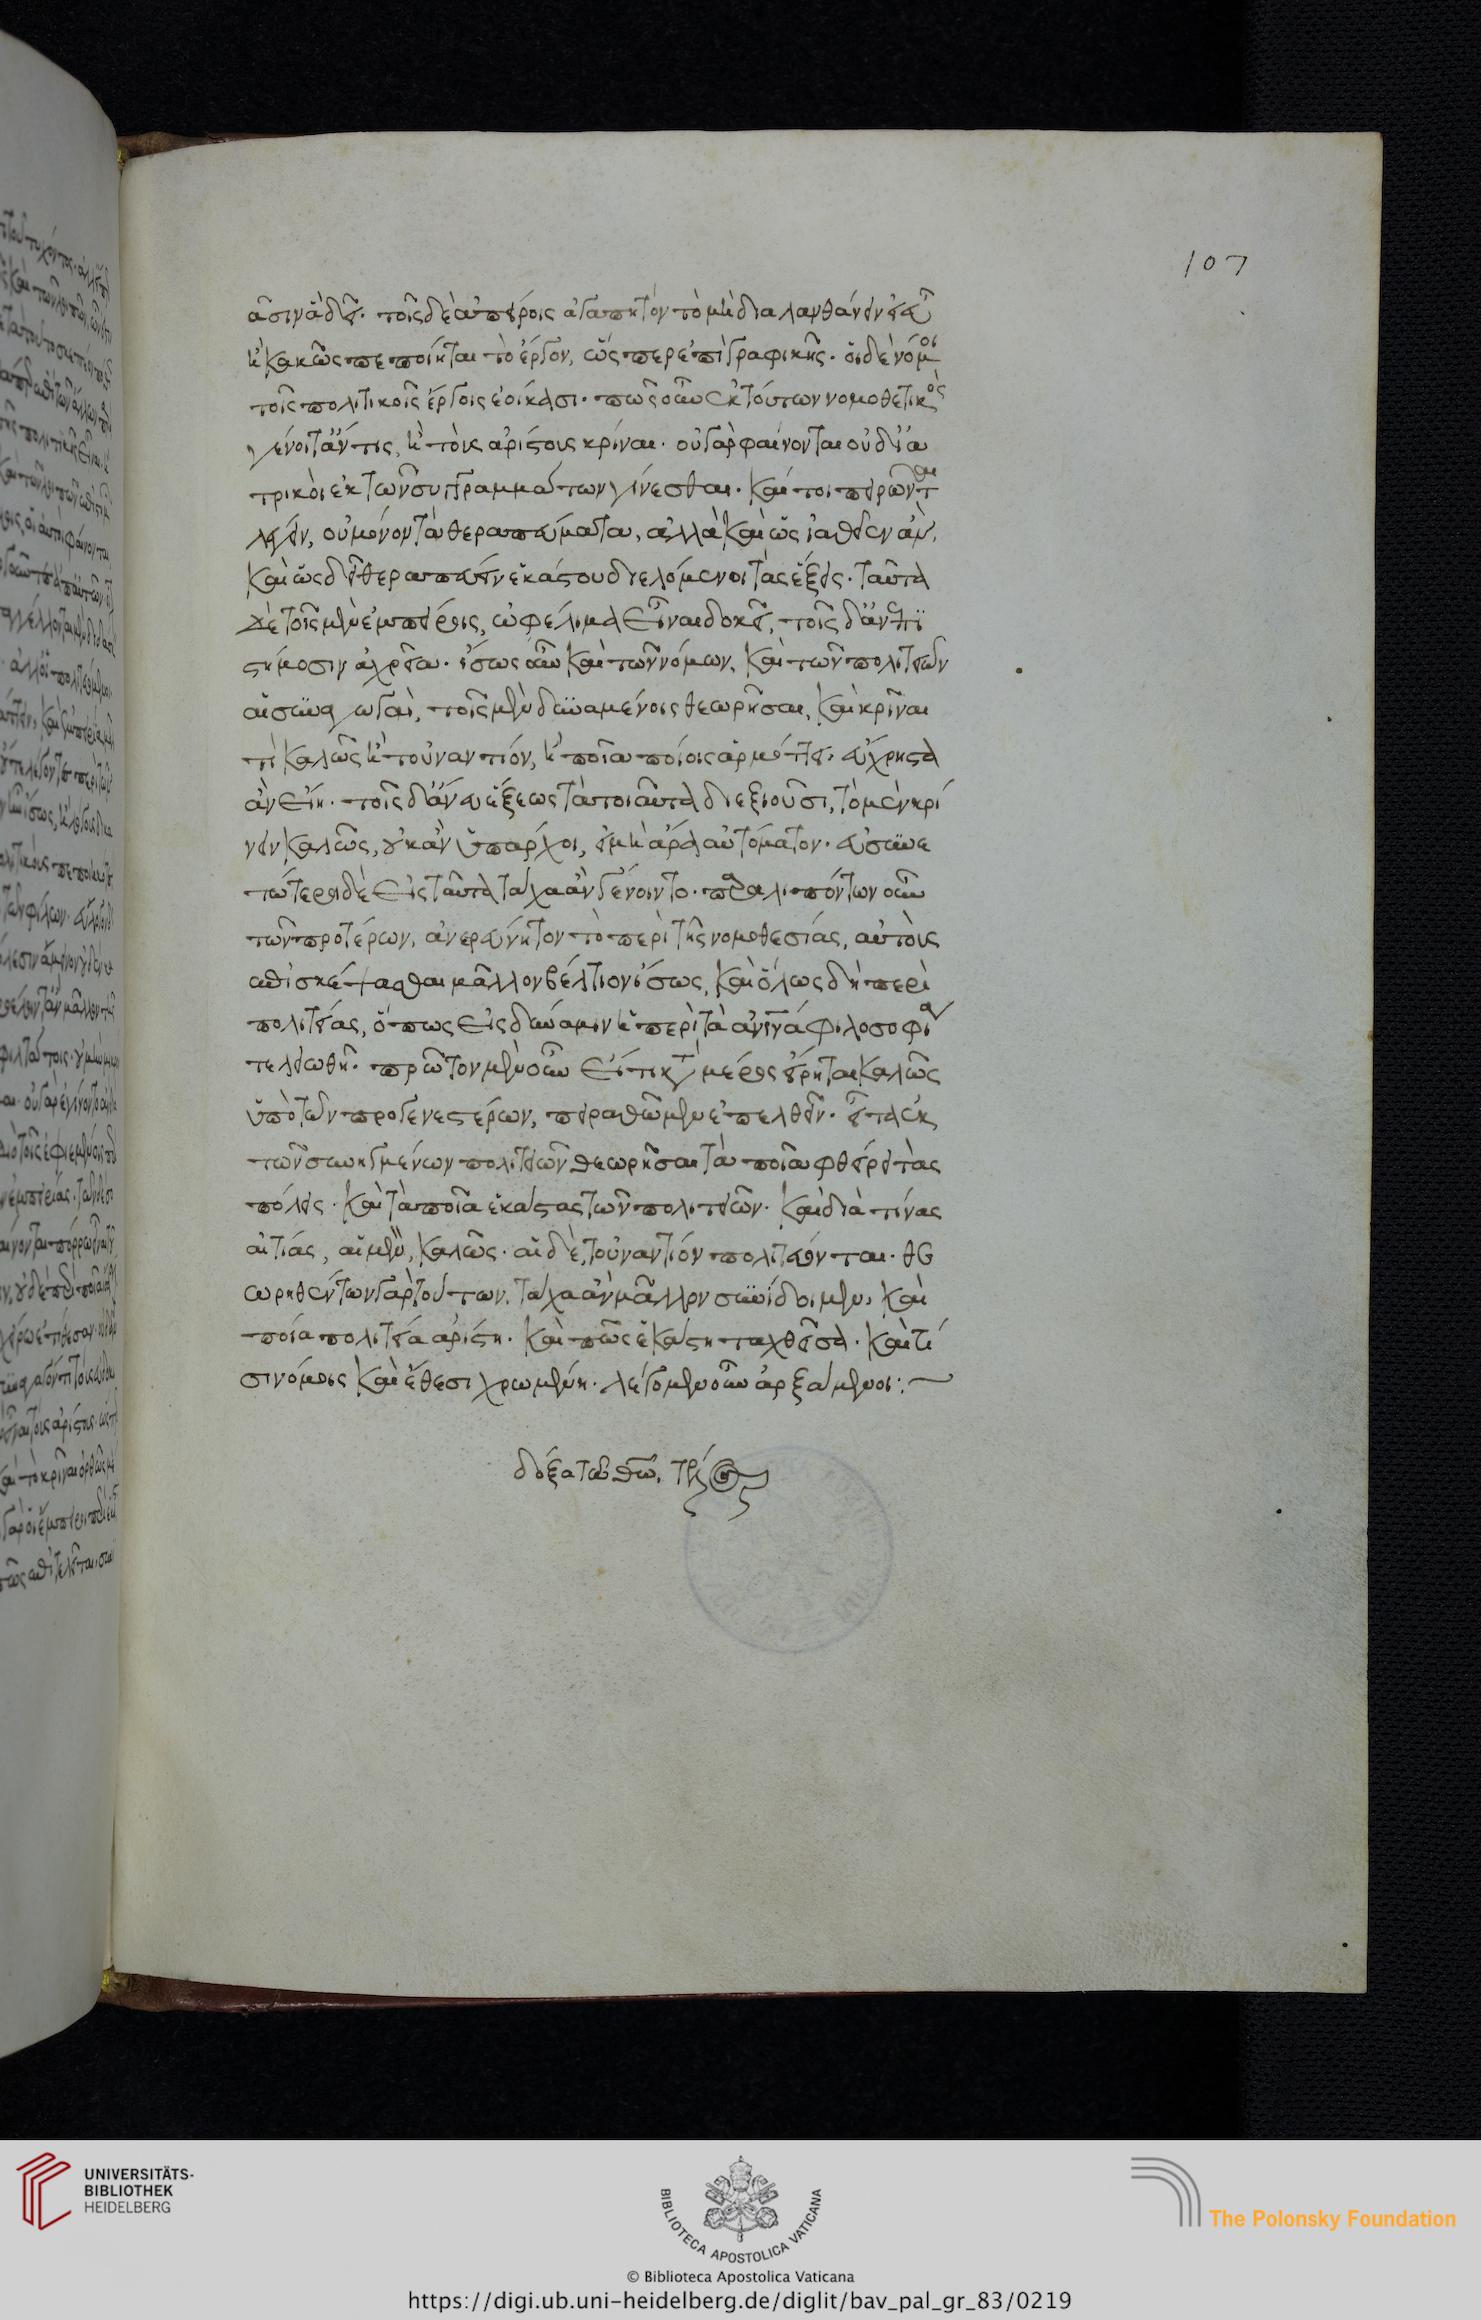 107
ᾶσιν ἄδει. τοῖς δὲ ἀπείροις ἀγαπητὸν τὸ μὴ διαλανθάνειν εἰ εὖ
ἢ κακῶς πεποίηται τὸ ἔργον, ὥσπερ ἐπὶ γραφικῆς. οἱ δὲ νόμοι
τοῖς πολιτικοῖς ἔργοις ἐοίκασι. πῶς οὖν ἐκ τούτων νομοθετικὸς
γένοιτ' ἄν τις, ἢ τοὺς ἀρίστους κρίναι. οὐ γὰρ φαίνονται οὐδ' ἰα
τρικοὶ ἐκ τῶν συγγραμμάτων γίνεσθαι. καί τοι πειρῶνται
λέγειν, οὐ μόνον τὰ θεραπεύματα, ἀλλὰ καὶ ὡς ἰαθεῖεν ἂν,
καὶ ὡς δεῖ θεραπεύειν ἑκάστου διελόμενοι τὰς ἕξεις. ταῦτα
δὲ τοῖς μὲν ἐμπείροις, ὠφέλιμα εἶναι δοκεῖ, τοῖς δ' ἀνεπι
στήμοσιν ἀχρεῖα. ἴσως οὖν καὶ τῶν νόμων, καὶ τῶν πολιτειῶν
αἱ συναγωγαὶ, τοῖς μὲν δυναμένοις θεωρῆσαι, καὶ κρῖναι
τί καλῶς ἢ τοὐναντίον, ἢ ποῖα ποίοις ἁρμόττει. εὔχρηστα
ἂν εἴη. τοῖς δ' ἄνευ ἕξεως τὰ τοιαῦτα διεξιοῦσι, τὸ μὲν κρί
νειν καλῶς, οὐκ ἂν ὑπάρχοι, εἰ μὴ ἄρα αὐτόματον. εὐσυνε
τώτεροι δὲ εἰς ταῦτα τάχα ἂν γένοιντο. παραλιπόντων οὖν
τῶν προτέρων, ἀνερεύνητον τὸ περὶ τῆς νομοθεσίας, αὐτοὺς
ἐπισκέψασθαι μᾶλλον βέλτιον ἴσως, καὶ ὅλως δὴ περὶ
πολιτείας, ὅπως εἰς δύναμιν ἡ περὶ τὰ ἀνινὰ φιλοσοφία
τελειωθῇ. πρῶτον μὲν οὖν εἴ τι κατὰ μέρος εἴρηται καλῶς
ὑπὸ τῶν προγενεστέρων, πειραθῶμεν ἐπελθεῖν. εἶτα ἐκ
τῶν συνηγμένων πολιτειῶν θεωρῆσαι τὰ ποῖα φθείρει τὰς
πόλεις. καὶ τὰ ποῖα ἑκάστας τῶν πολιτειῶν. καὶ διὰ τίνας
αἰτίας, αἱ μὲν, καλῶς. αἱ δὲ, τοὐναντίον πολιτεύονται. θε
ωρηθέντων γὰρ τούτων, τάχα ἂν μᾶλλον συνίδοιμεν, καὶ
ποία πολιτεία ἀρίστη. καὶ πῶς ἑκάστη ταχθεῖσα. καὶ τί
σι νόμοις καὶ ἔθεσι χρωμένη. λέγομεν οὖν ἀρξάμενοι:
δόξα τῶ θῶ.
UNIVERSITÄTS-
BIBLIOTHEK
HEIDELBERG
BIBLIOTECA APOSTOLICA VATICANA
© Biblioteca Apostolica Vaticana
The Polonsky Foundation
https://digi.ub.uni-heidelberg.de/diglit/bav_pal_gr_83/0219